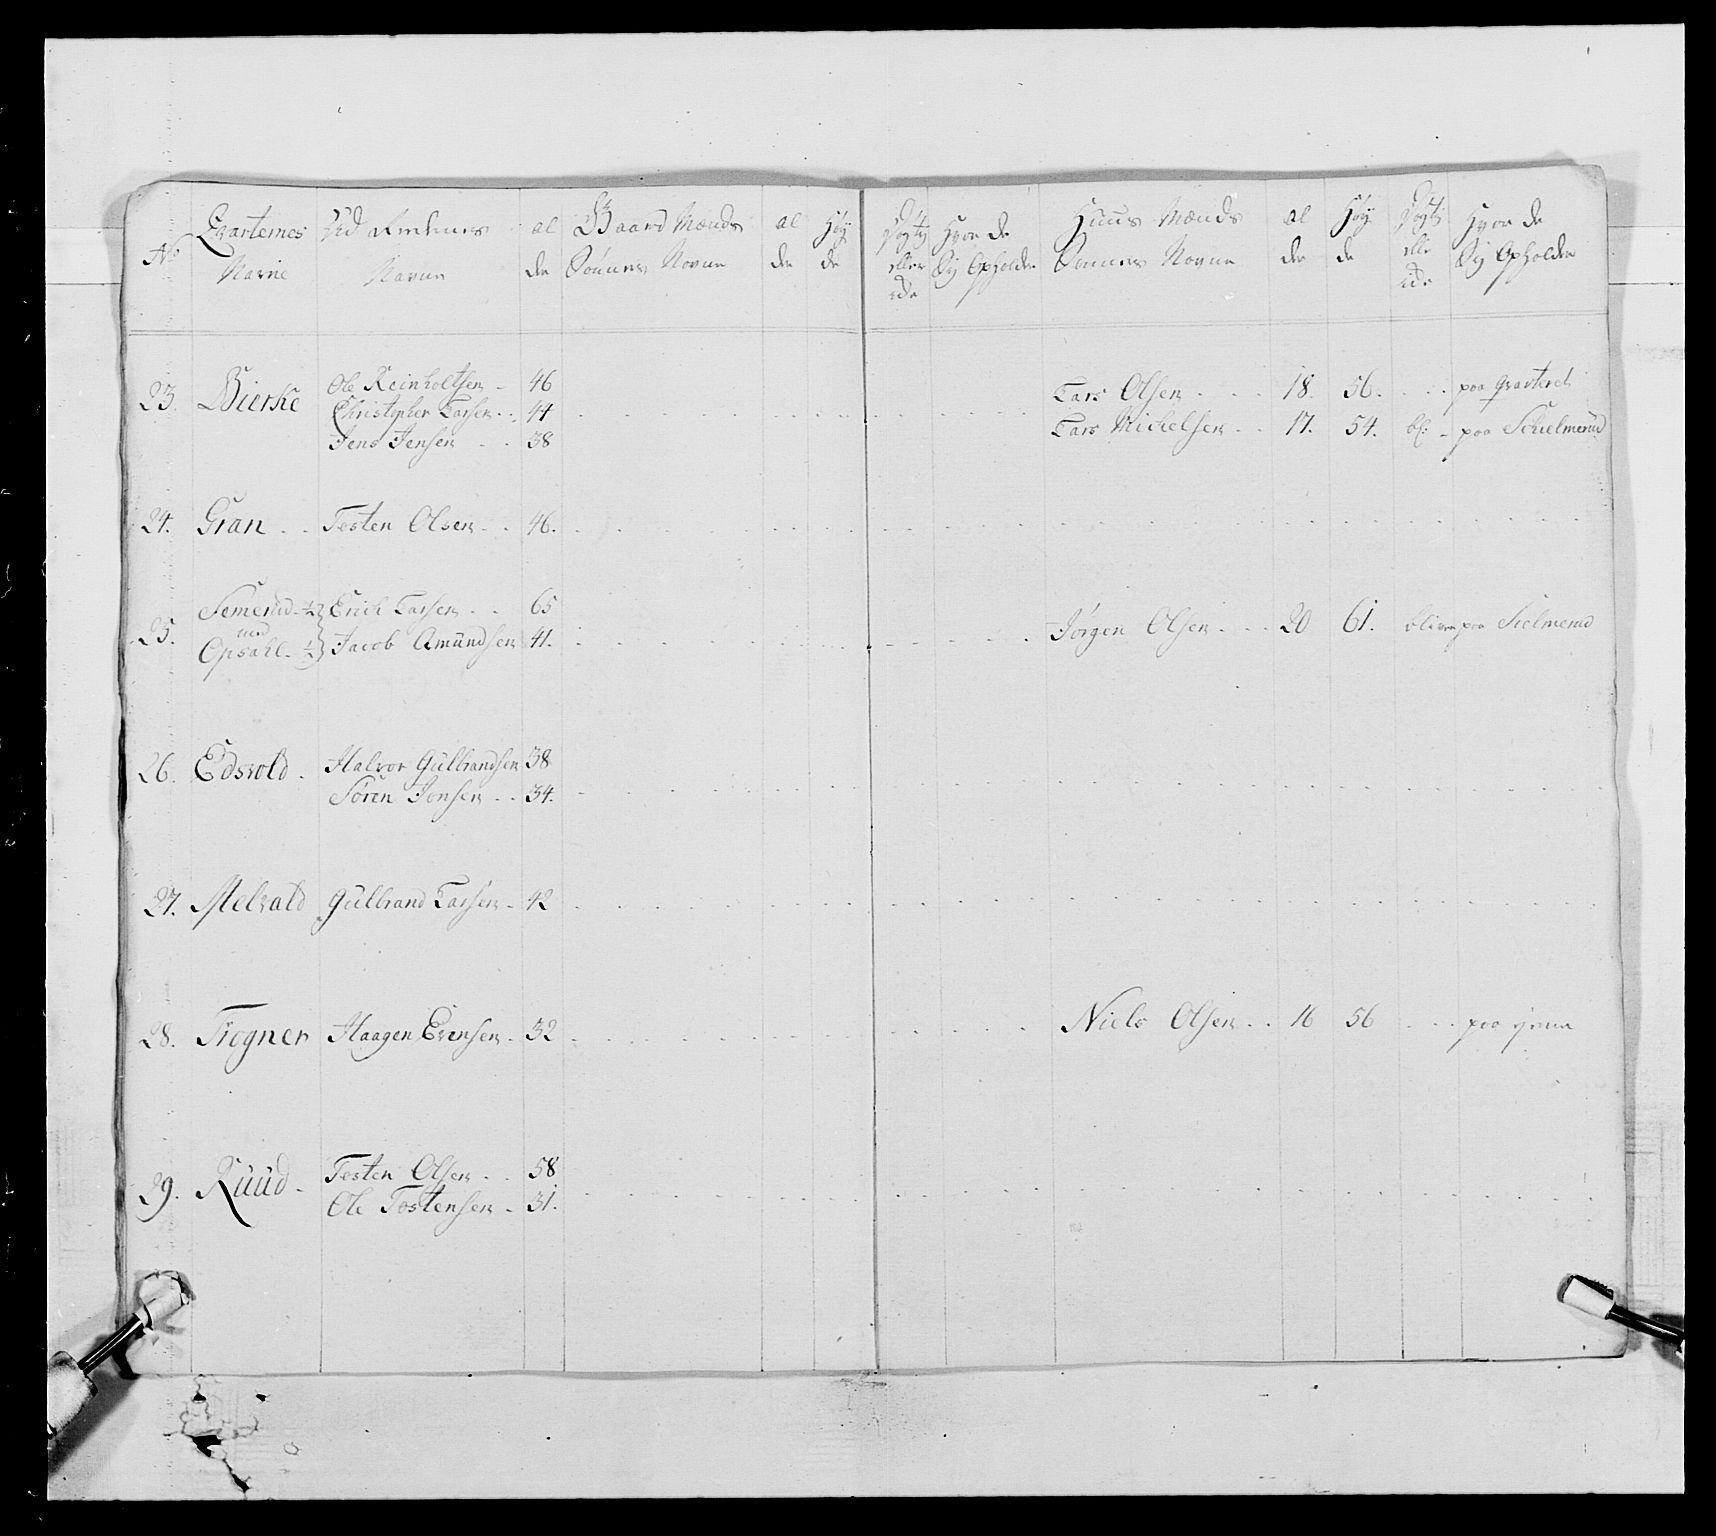 No Qvarternes Navne | Navne | al de | Gaard Mænds Sønners Navne | al de | Høy de | Dygtig eller ide | Hvor de Sig Opholder | Huus Mænds Sønners Navne | al de | Høy de | Dygti elle ide | Hvor de Sig Opholder
23. Bierke Ole Reinholtsen 46 Lars Olsen 18. 56. paa Qvarteret
Christopher Larsen 44 Lars Michelsen 17. 54. paa
Jens Jensen 38
24. Gran Testen Olsen 46.
25. Semerud ½ Erich Larsen 65 Jørgen Olsen 20 61. paa Sielmerud
med
Opsahl ½ Jacob Amundsen 41.
26. Edsvold Halvor Gulbrandsen 38
Søren Jonsen 34.
27. Melvald Gulbrand Larsen 42
28. Trogner Haagen Evensen 32 Niels Olsen 16 56 paa
29. Ruud Testen Olsen 58
Ole Tostensen 31.